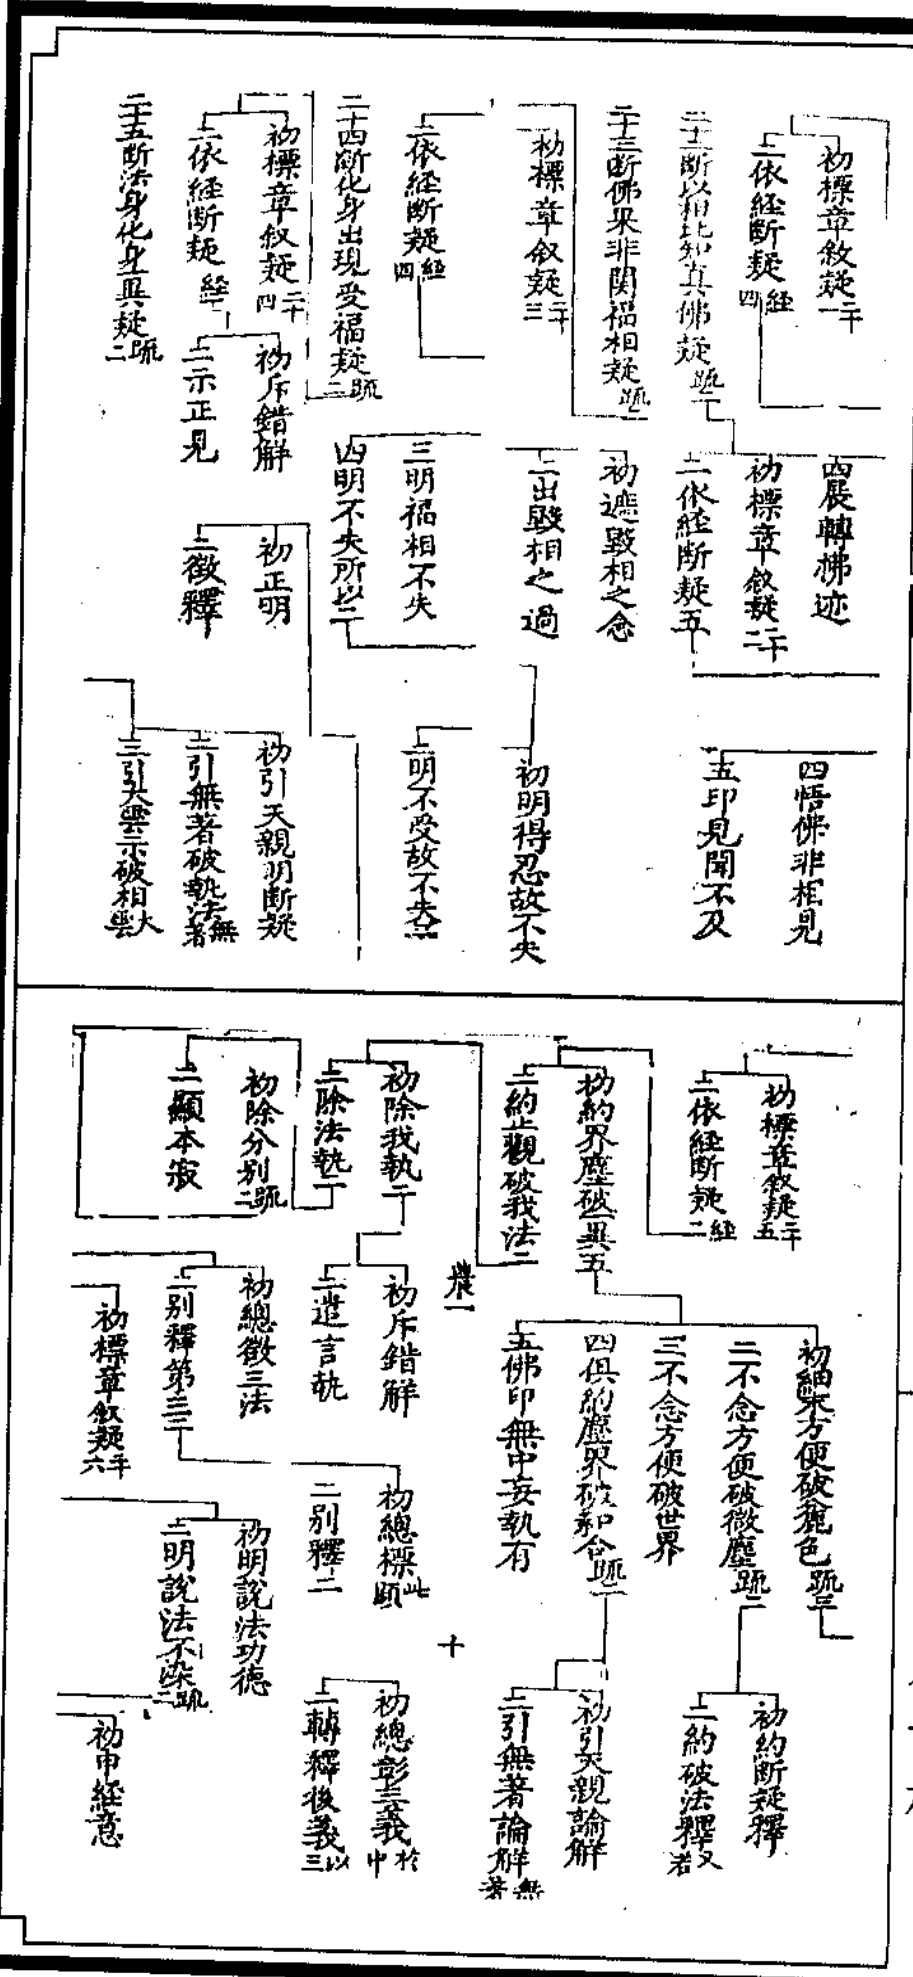 初標章敘疑二十一
二依經断疑經四
二十二断以相比知真佛疑䟽二
二十三断佛果非関福相疑䟽二
初標章敘疑二十三
二依經断疑經四
二十四断化身出現受福疑䟽二
初標章敘疑二十四
二依經断疑經二
二十五断法身化身異疑䟽二
初斥錯解
二示正見
四展轉拂迹
初標章敘疑二十二
二依經断疑五
初遮毀相之念
二出毀相之過
三明福相不失
四明不失所以二
初正明
二徵釋
四悟佛非相見
五印見聞不及
初明得忍故不失
二明不受故不失二
初引天親明断疑
二引無著破執法無著
三引大雲示破相大雲
初標章敘疑二十五
二依經断疑經二
初約界塵破異五
二約止觀破我法二
初除我執二
二除法執二
初除分別䟽二
二顯本寂
初細末方便破麁色䟽三
二不念方便破微塵䟽二
三不念方便破世界
四俱約塵界破和合䟽二
五佛印無中妄執有
農一
初斥錯解
二遣言執
初總徵三法
二别釋第三二
初標章敘疑二十六
初總標此頤
二别釋二
初明說法功德
二明說法不染䟽二
初約断疑釋
二約破法釋又若
初引天親論解
二引無著論解無著
十
初總彰三義於中
二轉釋後義以三
初申經意